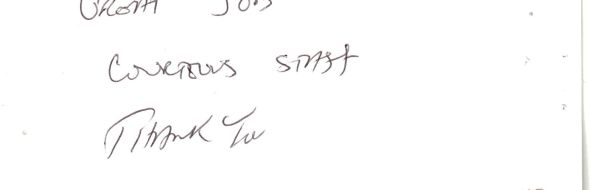 GREAT JOB
COURTEOUS STAFF
THANK YOU